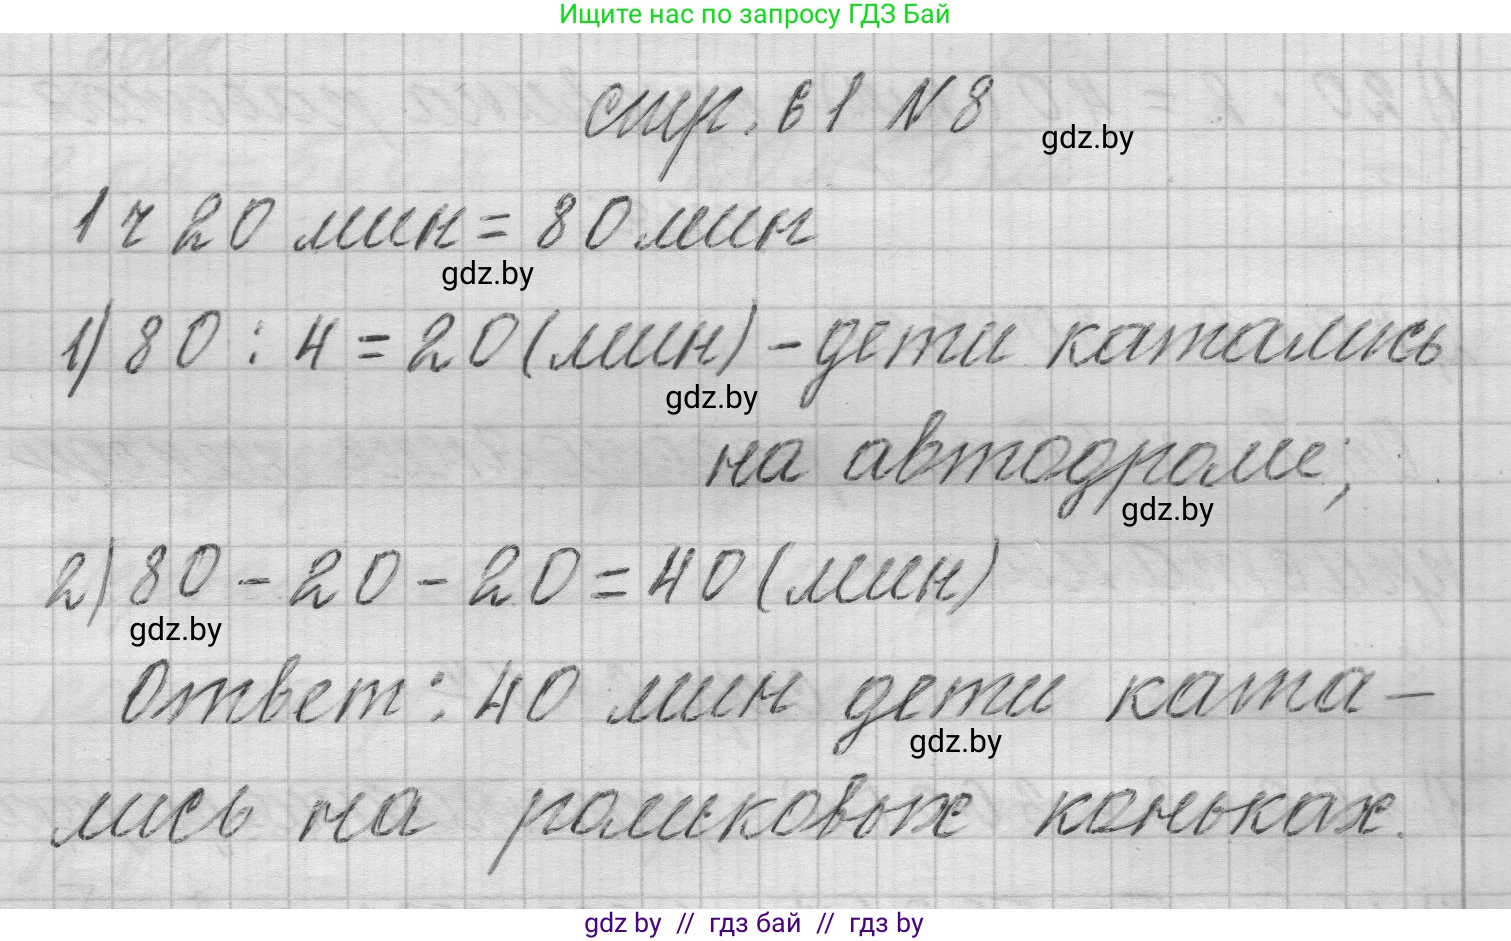 Ищите нас по запросу ГДЗ Бай
стр. 61 № 8
gdz.by
1 ч 20 мин = 80 мин
gdz.by
1) 80 : 4 = 20 (мин) - дети катались
gdz.by
на автодроме;
gdz.by
2) 80 - 20 - 20 = 40 (мин)
gdz.by
Ответ: 40 мин дети ката-
gdz.by
лись на роликовых коньках.
gdz by // гдз бай // гдз by